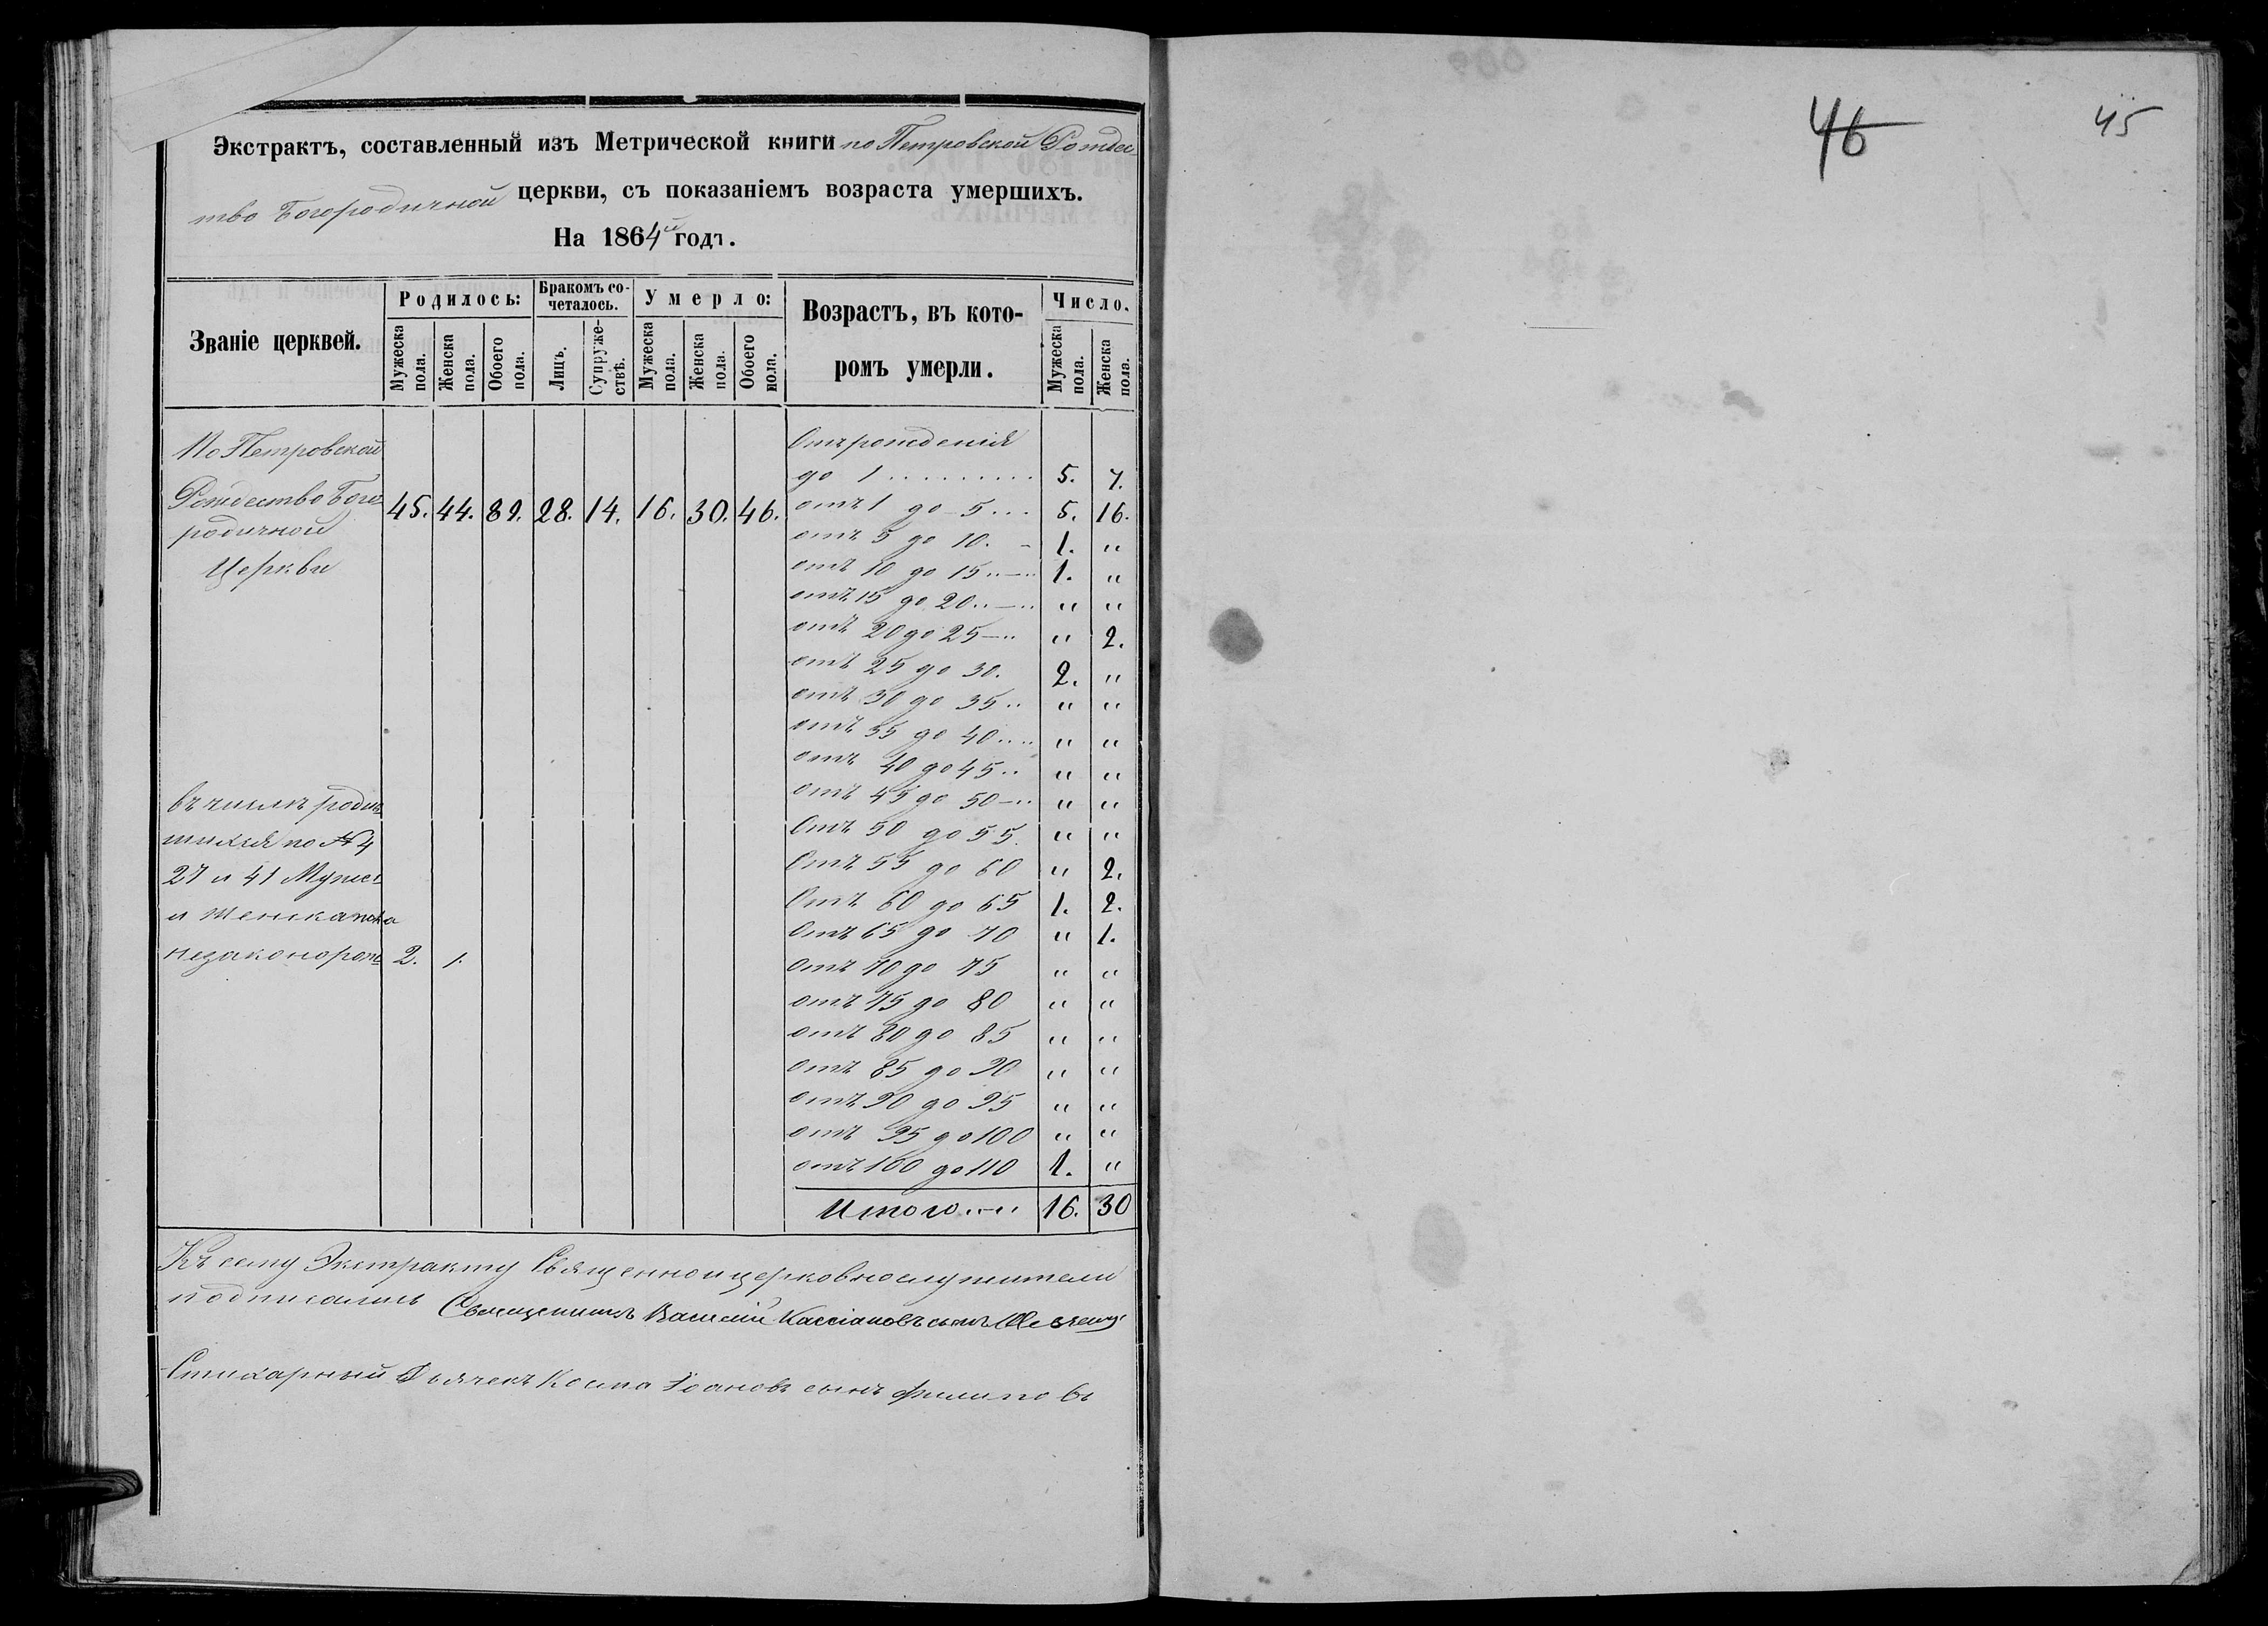 Экстрактъ, составленный изъ Метрической книги по Петровской Рождес-
тво Богородичной церкви, съ показаніемъ возраста умершихъ.
На 1864й годъ.
Званіе церквей. Родилось: Бракомъ сочеталось. Умерло: Возрастъ, въ которомъ умерли. Число.
Мужеска пола. Женска пола. Обоего пола. Лицъ. Супружествъ. Мужеска пола. Женска пола. Обоего пола. Мужеска пола. Женска пола.
По Петровской
Рождество Бого-
родичной
Церкви
45. 44. 89. 28. 14. 16. 30. 46.
Отъ рожденія
до 1 .......... 5. 7.
отъ 1 до 5 ... 5. 16.
отъ 5 до 10. - 1. "
отъ 10 до 15 .. — .. 1. "
отъ 15 до 20 .. — .. " "
отъ 20 до 25 — .. " 2.
отъ 25 до 30. 2. "
отъ 30 до 35 .. " "
отъ 35 до 40 .... " "
отъ 40 до 45 .. " "
отъ 45 до 50 — .. " "
Отъ 50 до 55. " "
Отъ 55 до 60 " 2.
Отъ 60 до 65 1. 2.
Отъ 65 до 70 " 1.
Отъ 70 до 75 " "
отъ 75 до 80 " "
отъ 80 до 85 " "
отъ 85 до 90 " "
отъ 90 до 95 " "
отъ 95 до 100 " "
отъ 100 до 110 1. "
Итого .. — .. 16. 30
въ числѣ родив-
шихся по № 4
27 и 41 Мужес-
и женска пола
незаконорож- 2. 1.
Къ сему Экстракту Священноицерковнослужители
подписались Священникъ Василій Кассіановъ сынъ
Стихарный Дьячекъ Косма Іоановъ сынъ Филиповъ
46
45